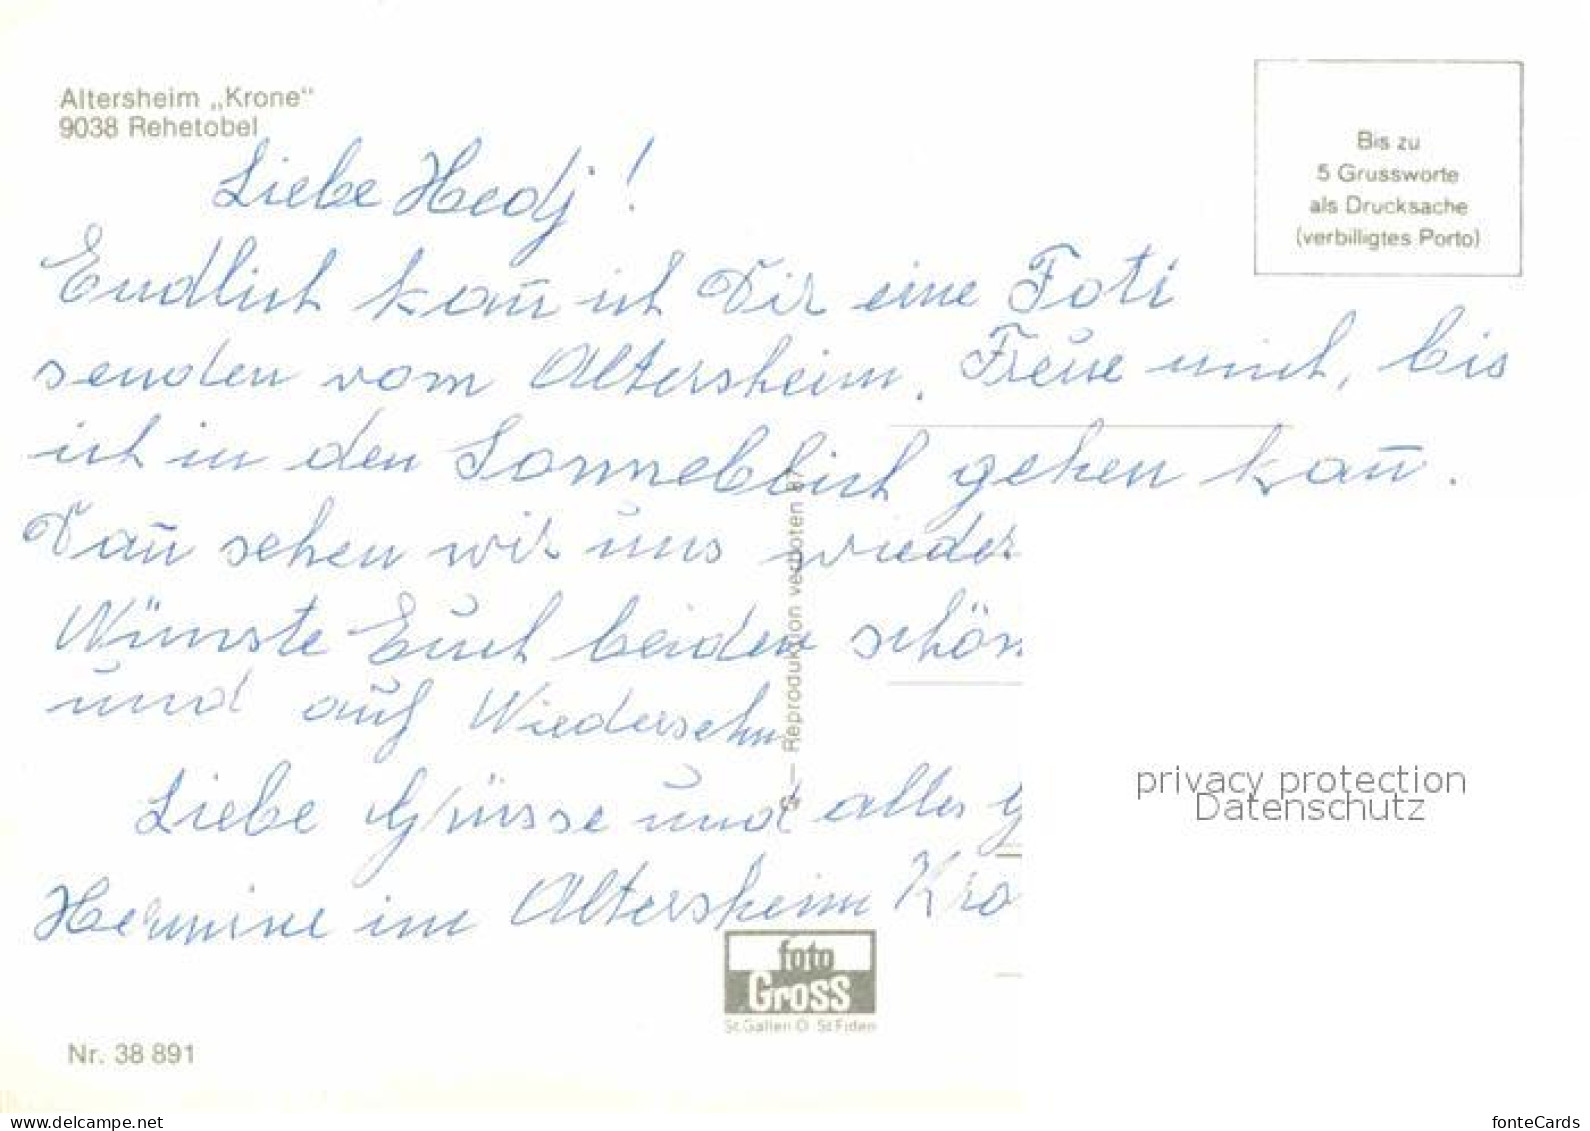 Altersheim „Krone“
9038 Rehetobel
Bis zu
5 Grussworte
als Drucksache
(verbilligtes Porto)
Liebe Hedj!
Endlich kan̄ ich Dir eine Foti
senden vom Altersheim. Freue mich, bis
ich in den Sonneblick gehen kan̄.
Dan̄ sehen wir uns wieder
Wünste Euch beiden schön
und auf Wiedersehn
Liebe Grüsse und alles G
Hermine im Altersheim Kro
— Reproduktion verboten 87
privacy protection
Datenschutz
foto
Gross
St.Gallen O St.Fiden
Nr. 38 891
delcampe.net
fonteCards